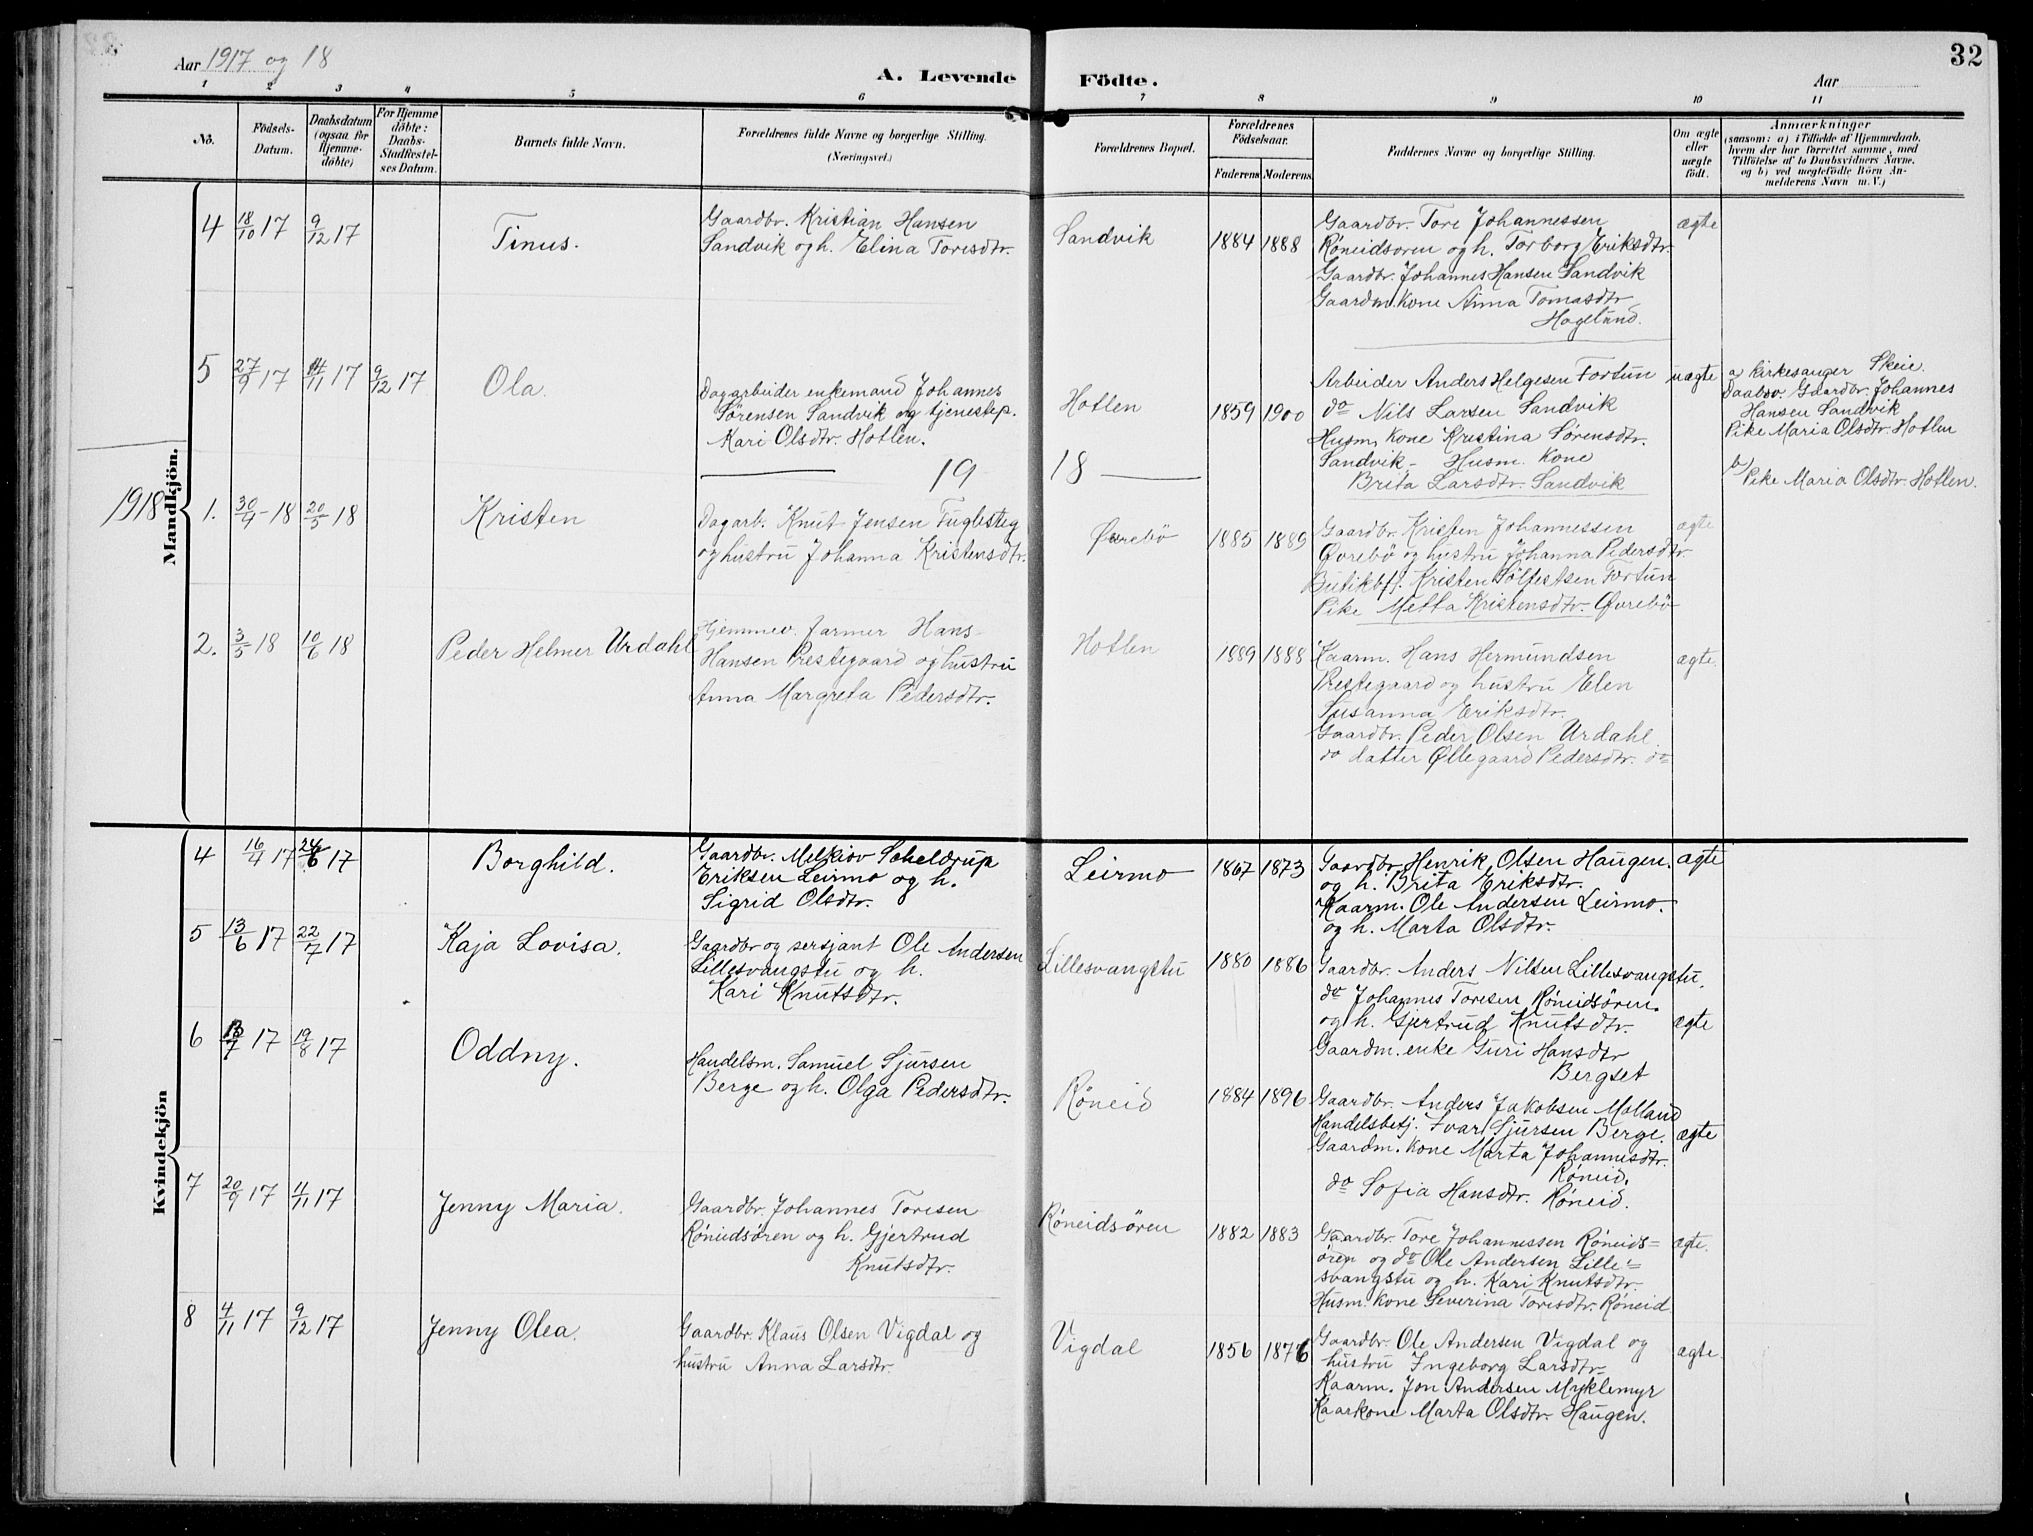 32
Aar 1917 og 18
A. Levende Födte.
Aar
1 2 3 4 5 6 7 8 9 10 11
No.
Födsels-Datum.
Daabsdatum (ogsaa for Hjemmedöbte)
For Hjemmedöbte: Daabs-Stadfæstelses Datum.
Barnets fulde Navn.
Forældrenes fulde Navne og borgerlige Stilling.
(Næringsvei.)
Forældrenes Bopæl.
Forældrenes Födselsaar.
Faderens Moderens
Faddernes Navne og borgerlige Stilling.
Om ægte eller uægte födt.
Anmærkninger
(saasom: a) i Tilfælde af Hjemmedaab,
hvem der har forrettet samme, med
Tilföielse af to Daabsvidners Navne,
og b) ved uægtefödte Börn An-
melderens Navn m. V.)
Mandkjön.
4 18/10 17 9/12 17 Tinus.
Gaardbr. Kristian Hansen
Sandvik og h. Elina Toresdtr.
Sandvik 1884 1888
Gaardbr. Tore Johannessen
Röneidsøren og h. Torborg Eriksdtr.
Gaardbr. Johannes Hansen Sandvik
Gaardm. Kone Anna Tomasdtr
Hagelund.
ægte
5 27/9 17 4/11 17 9/12 17 Ola.
Dagarbeider enkemand Johannes
Sørensen Sandvik og tjenestep.
Kari Olsdtr. Hotlen.
Hotlen 1859 1900
Arbeider Anders Helgesen Fortun
do Nils Larsen Sandvik
Husm. Kone Kristina Sørensdtr.
Sandvik – Husm. Kone
Brita Larsdtr. Sandvik
uægte
a) Kirkesanger Skeie.
Daabsv. Gaardbr. Johannes
Hansen Sandvik
Pike Maria Olsdtr. Hotlen
b) Pike Maria Olsdtr. Hotlen.
19 18
1918
1. 30/4 - 18 20/5 18 Kristen
Dagarb. Knut Jensen Fuglesteg
og hustru Johanna Kristensdtr.
Øvrebö 1885 1889
Gaardbr. Kristen Johannessen
Øvrebö og hustru Johanna Pedersdtr.
Butikbf. Kristen Sölfestsen Fortun
Pike Metta Kristensdtr. Øvrebö
ægte
2. 3/5 18 10/6 18 Peder Helmer Urdahl
Hjemmev. farmer Hans
Hansen Prestegaard og hustru
Anna Margreta Pedersdtr.
Hotlen 1889 1888
Kaarm. Hans Hermundsen
Prestegaard og hustru Elen
Susanna Eriksdtr.
Gaardbr. Peder Olsen Urdahl
do datter Øllegaard Pedersdtr. do
ægte.
Kvindekjön
4 16/4 17 24/6 17 Borghild.
Gaardbr. Melkiov Scheldrup
Eriksen Leirmo og h.
Sigrid Olsdtr.
Leirmo 1867 1873
Gaardbr. Henrik Olsen Haugen.
og h. Brita Eriksdtr.
Kaarm. Ole Andersen Leirmo.
og h. Marta Olsdtr.
ægte
5 13/6 17 22/7 17 Kaja Lovisa.
Gaardbr og sersjant Ole Andersen
Lillesvangstu og h.
Kari Knutsdtr.
Lillesvangstu 1880 1886
Gaardbr. Anders Nilsen Lillesvangstu.
do Johannes Toresen Röneidsören.
og h. Gjertrud Knutsdtr.
Gaardm. enke Guri Hansdtr
Bergset
ægte
6 13/7 17 19/8 17 Oddny.
Handelsm. Samuel Sjursen
Berge og h. Olga Pedersdtr.
Röneid 1884 1896
Gaardbr. Anders Jakobsen Molland
Handelsbetj. Ivar Sjursen Berge.
Gaardm. Kone Marta Johannesdtr.
Röneid.
do Sofia Hansdtr. Röneid.
ægte
7 20/9 17 4/11 17 Jenny Maria.
Gaardbr. Johannes Toresen
Röneidsøren og h. Gjertrud
Knutsdtr.
Röneidsören 1882 1883
Gaardbr. Tore Johannessen Röneids=
ören og do Ole Andersen Lille=
svangstu og h. Kari Knutsdtr.
Husm. Kone Severina Toresdtr. Röneid
ægte.
8 4/11 17 9/12 17 Jenny Olea.
Gaardbr. Klaus Olsen Vigdal og
hustru Anna Larsdtr.
Vigdal 1856 1876
Gaardbr. Ole Andersen Vigdal og
hustru Ingeborg Larsdtr
Kaarm. Jon Andersen Myklemyr
Kaarkone Marta Olsdtr. Haugen.
ægte.